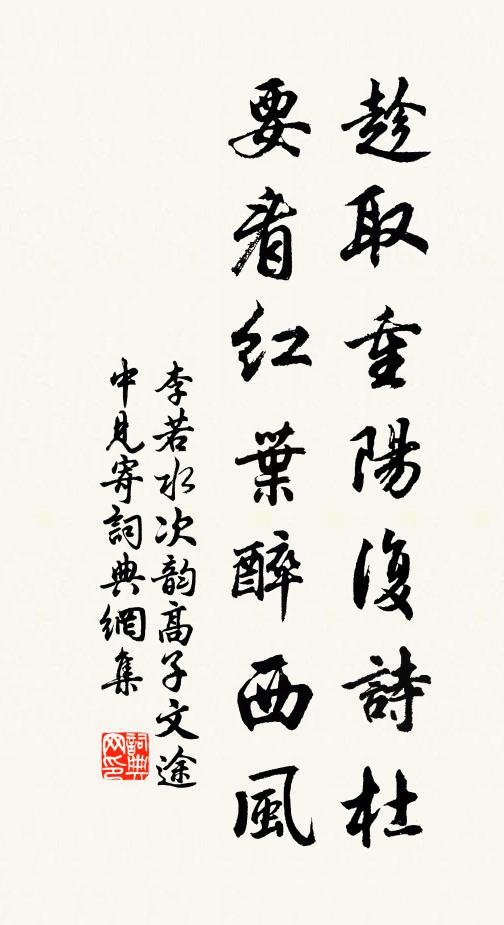 趁取重陽復詩杜
要看紅葉醉西風
李若水次韵高子文途
中見寄詞典網集
詞典網印